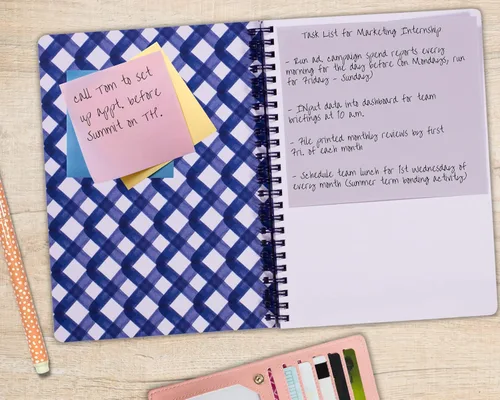 call Tom to set
up appt. before
Summit on TH.
Task List for Marketing Internship
- Run ad. campaign spend reports every
morning for the day before (on Mondays, run
for Friday - Sunday)
- INput data into dashboard for team
briefings at 10 a.m.
- File printed monthly reviews by first
Fri. of each month
- Schedule team lunch for 1st Wednesday of
every month (Summer term bonding activity)